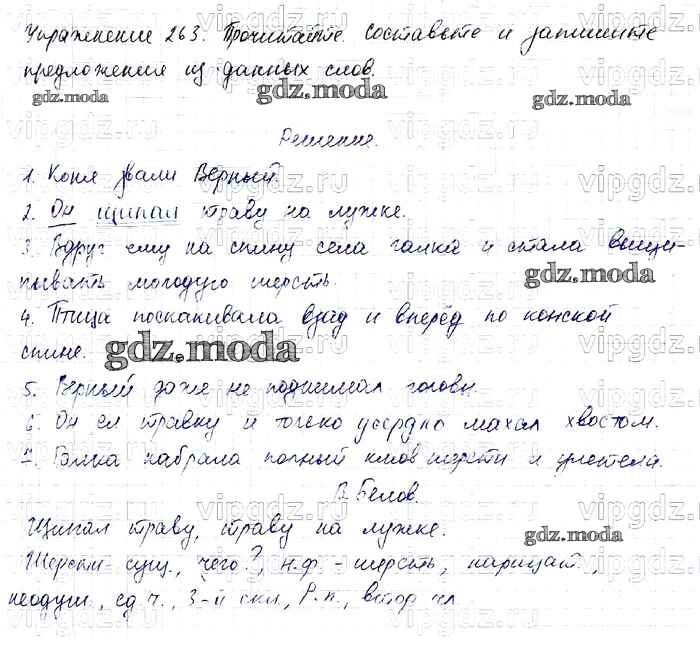 Упражнение 263. Прочитайте. Составьте и запишите
предложения из данных слов.
gdz.moda gdz.moda gdz.moda
Решение.
1. Коня звали Верный.
2. Он щипал траву на лужке.
3. Вдруг ему на спину села галка и стала выщи-
пывать молодую шерсть.
gdz.moda
4. Птица поскакивала взад и вперёд по конской
спине.
gdz.moda
5. Верный даже не поднимал головы.
6. Он ел травку и только усердно махал хвостом.
7. Галка набрала полный клюв шерсти и улетела.
В. Белов.
Щипал траву, траву на лужке.
gdz.moda
Шерсти - сущ., чего?, н.ф. - шерсть, нарицат.,
неодуш., ед.ч., 3-й скл., Р.п., втор. чл.
vipgdz.ru